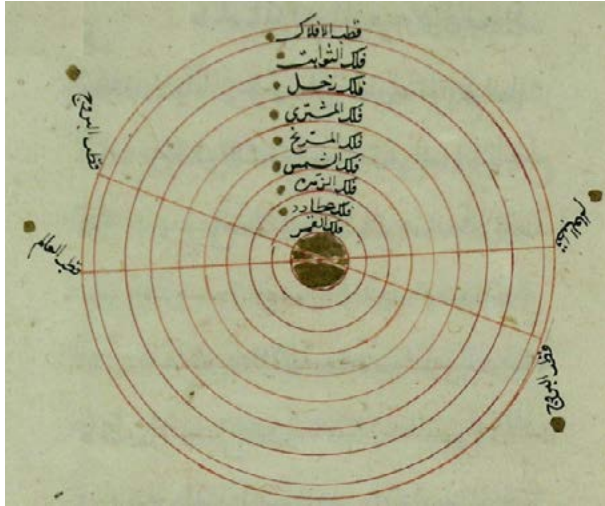 قطب الافلاك
فلك الثوابت
فلك زحل
فلك المشتري
فلك المريخ
فلك الشمس
فلك الزهره
فلك عطارد
فلك القمر
قطب البروج
قطب العالم
قطب العالم
قطب البروج